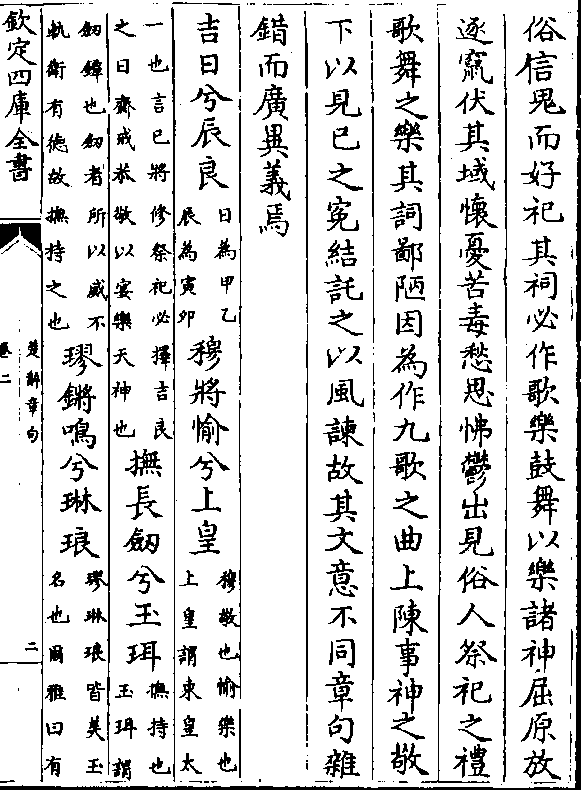 俗信鬼而好祀其祠必作歌樂鼓舞以樂諸神屈原放
逐竄伏其域懷憂苦毒愁思怫鬱出見俗人祭祀之禮
歌舞之樂其詞鄙陋因為作九歌之曲上陳事神之敬
下以見己之寃結託之以風諫故其文意不同章句雜
錯而廣異義焉
吉日兮辰良
日為甲乙
辰為寅夘
穆將愉兮上皇
穆敬也愉樂也
上皇謂東皇太
一也言己將修祭祀必擇吉良
之日齋戒恭敬以宴樂天神也
撫長劔兮玉珥
撫持也
玉珥謂
劔鐔也劔者所以威不
軌衛有徳故撫持之也
璆鏘鳴兮琳琅
璆琳琅皆美玉
名也爾雅曰有
欽定四庫全書
楚辭章句
卷二
二